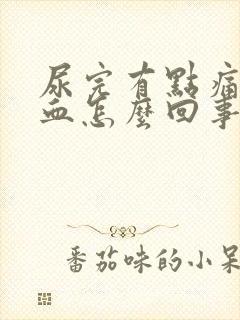 尿完有點痛
血怎麼回事
番茄味的小呆